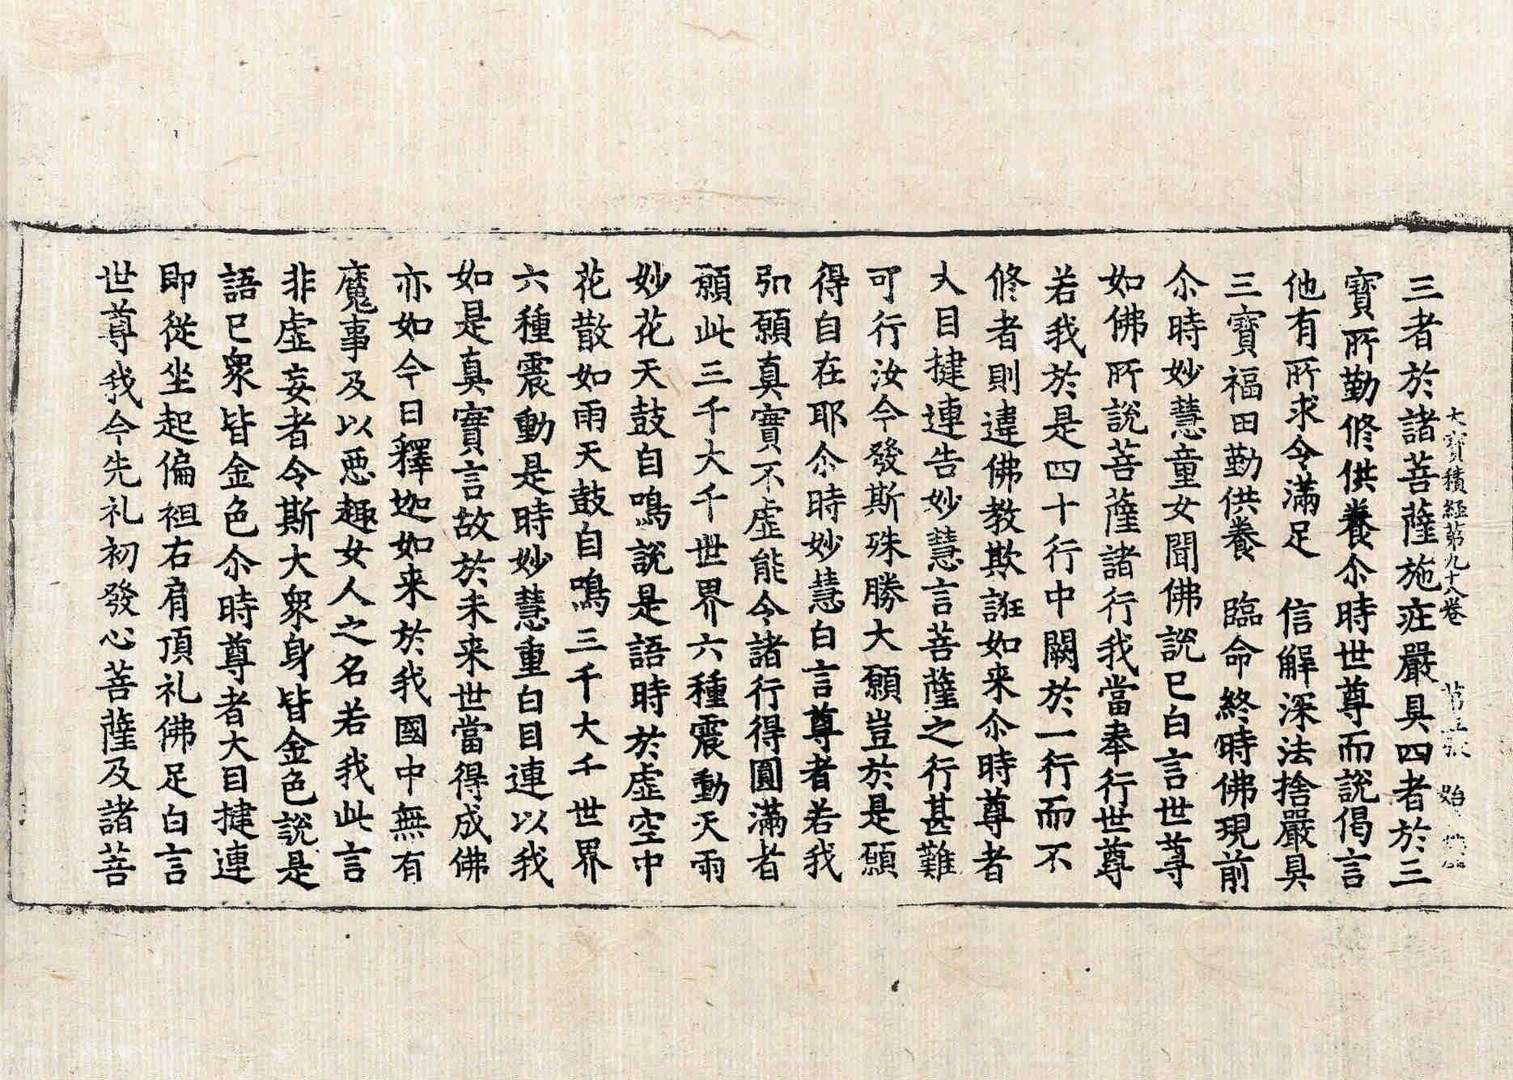 大寶積経苐九十八卷
三者於諸菩薩施庄嚴具四者於三
寶所勤修供養尒時世尊而說偈言
他有所求令滿足　信解深法捨嚴具
三寶福田勤供養　臨命終時佛現前
尒時妙慧童女聞佛說已白言世尊
如佛所說菩薩諸行我當奉行世尊
若我於是四十行中闕於一行而不
修者則違佛教欺誑如来尒時尊者
大目揵連告妙慧言菩薩之行甚難
可行汝今發斯殊勝大願豈於是願
得自在耶尒時妙慧白言尊者若我
弘願真實不虛能令諸行得圓滿者
願此三千大千世界六種震動天雨
妙花天鼓自鳴說是語時於虛空中
花散如雨天鼓自鳴三千大千世界
六種震動是時妙慧重白目連以我
如是真實言故於未来世當得成佛
亦如今日釋迦如来於我國中無有
魔事及以惡趣女人之名若我此言
非虛妄者令斯大衆身皆金色說是
語已衆皆金色尒時尊者大目揵連
即從坐起偏袒右肩頂礼佛足白言
世尊我今先礼初發心菩薩及諸菩